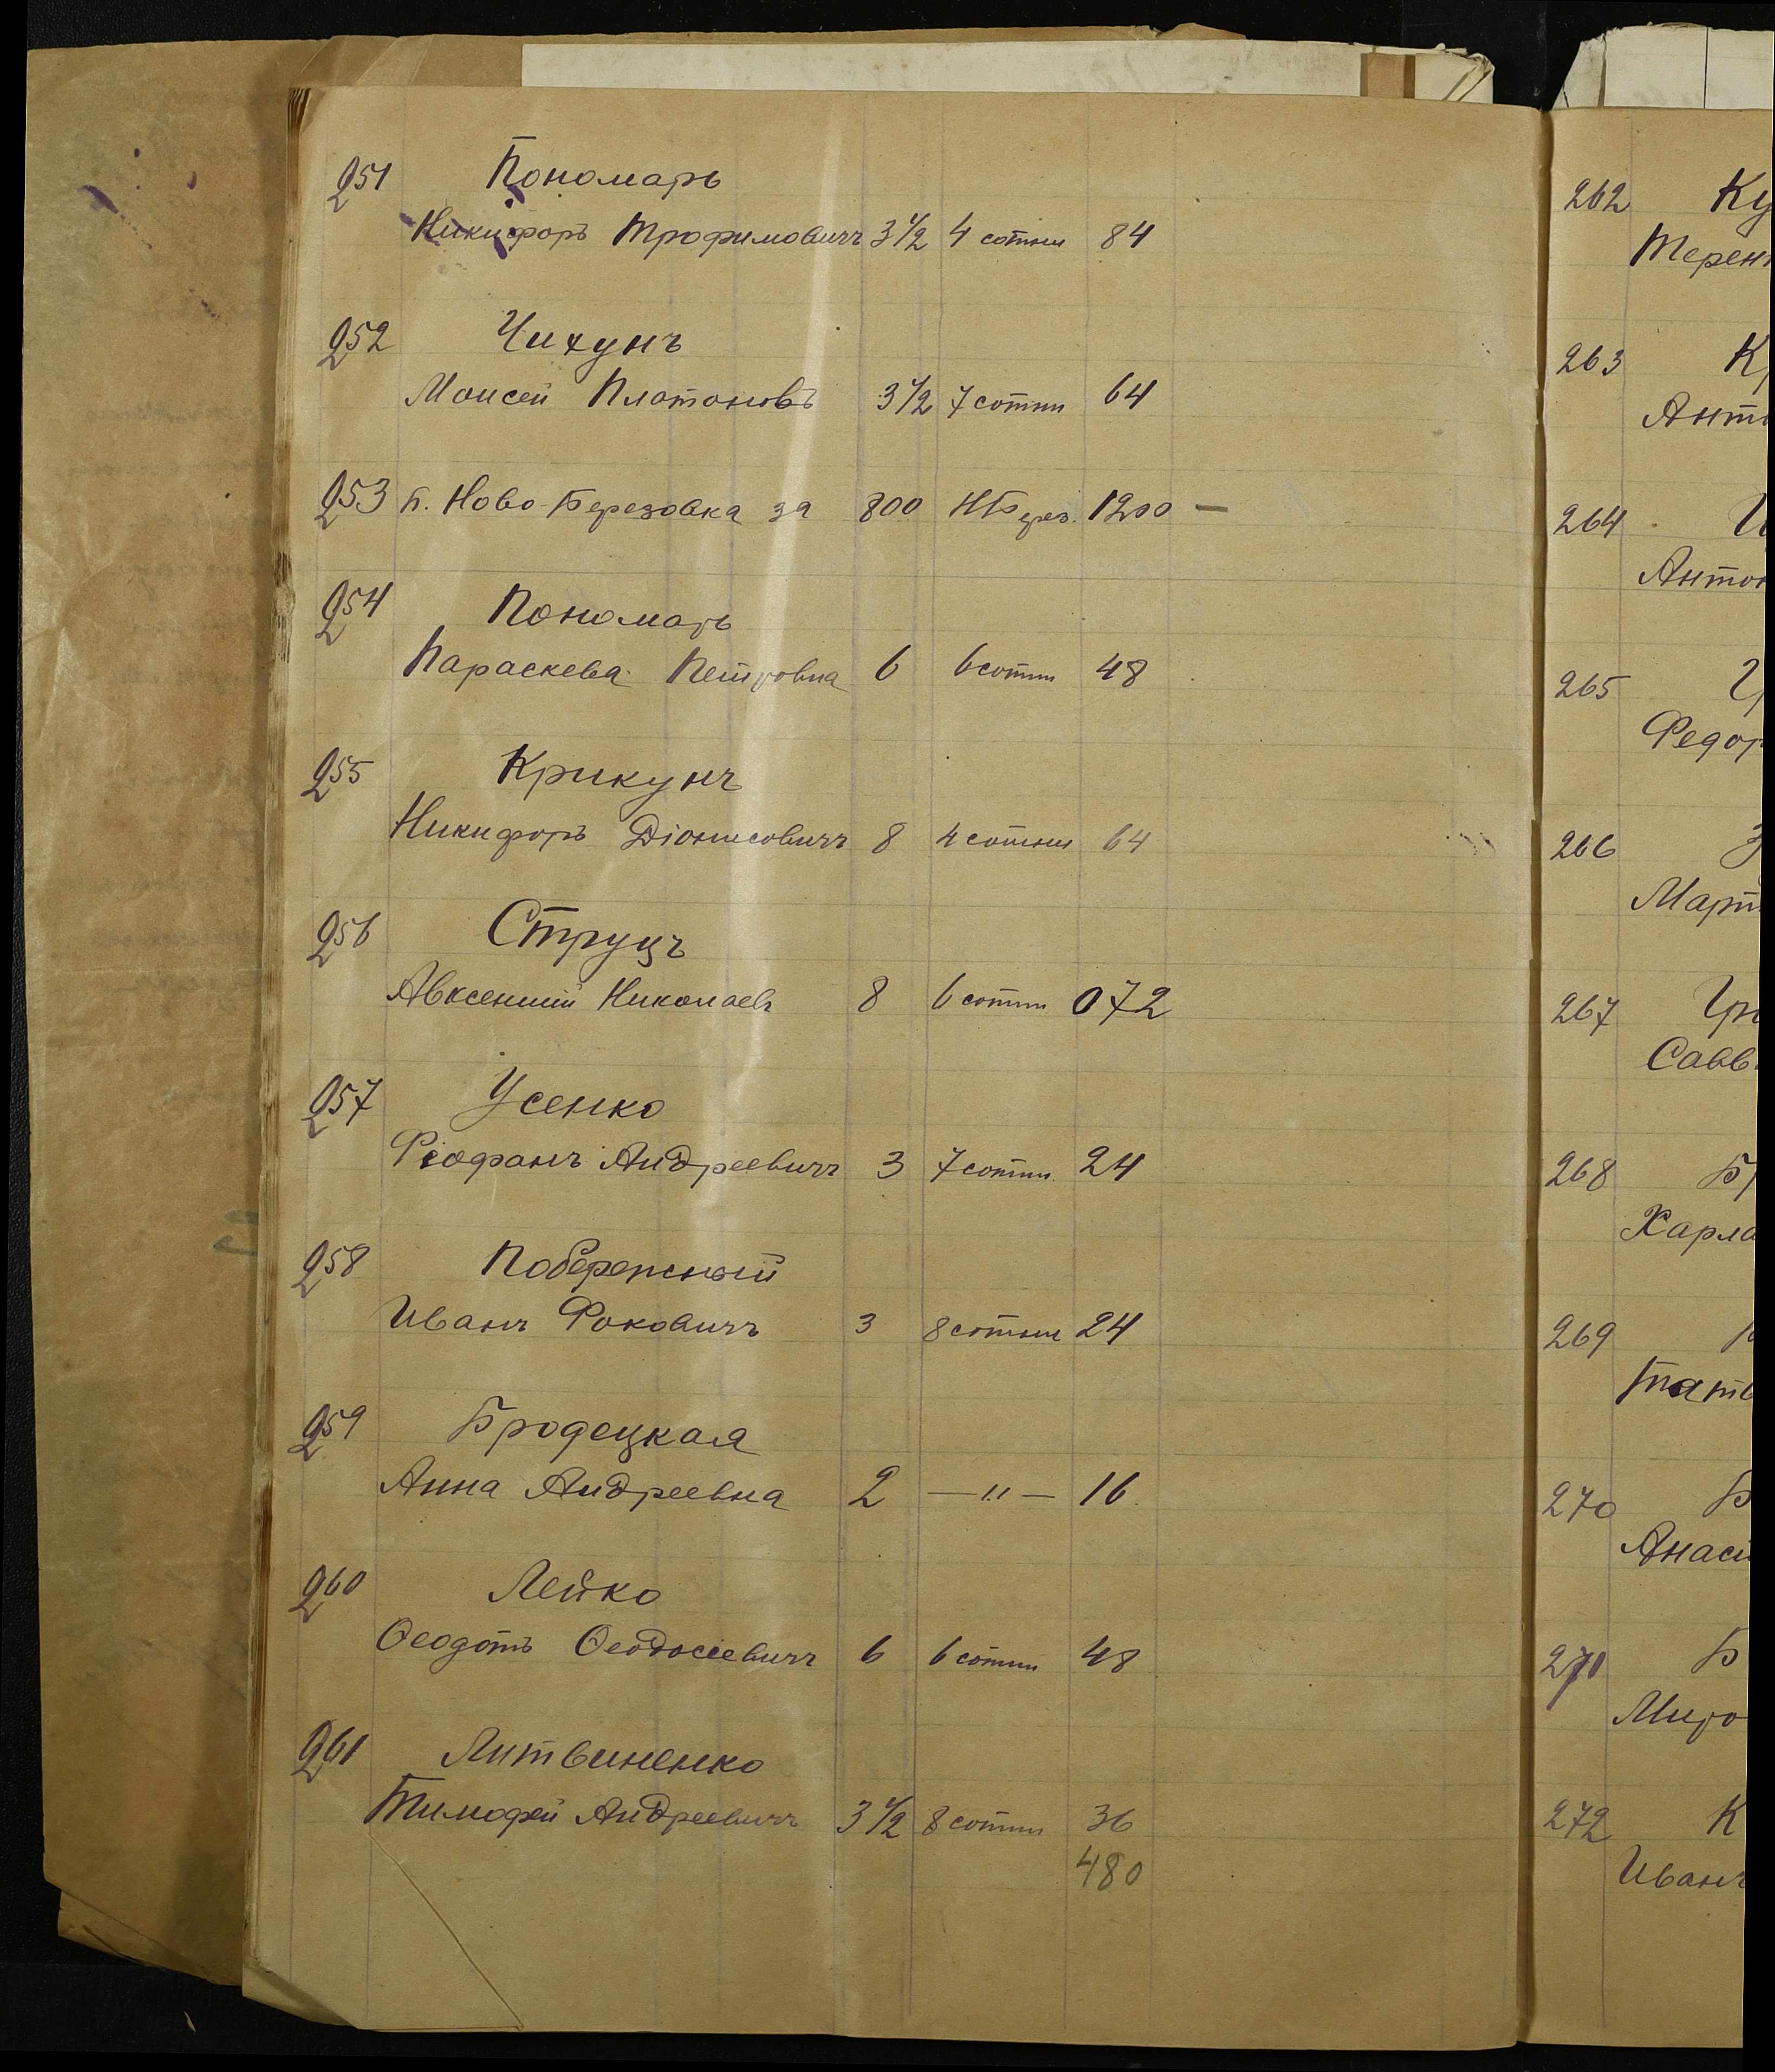 251 Пономарь
Никифоръ Трофимовичъ 3 1/2 4 сотни 84
252 Чихунъ
Моисей Платоновъ 3 1/2 7 сотни 64
253 п. Ново-Березовка за 800 НБерез. 1200 —
254 Пономарь
Параскева Петровна 6 6 сотни 48
255 Крикунъ
Никифоръ Діонисовичъ 8 4 сотни 64
256 Струцъ
Авксентій Николаевъ 8 6 сотни 072
257 Усенко
Феофанъ Андреевичъ 3 7 сотни 24
258 Побережный
Иванъ Фоковичъ 3 8 сотни 24
259 Бродецкая
Анна Андреевна 2 — " — 16
260 Лейко
Ѳеодотъ Ѳеодосіевичъ 6 6 сотни 48
261 Литвиненко
Тимофей Андреевичъ 3 1/2 8 сотни 36
480
262 Ку
Терен
263 К
Анто
264
Антон
265
Федор
266 З
Март
267 Гри
Савв
268 Б
Харла
269
Татья
270 Б
Анаст
271 Б
Миро
272 К
Иванъ